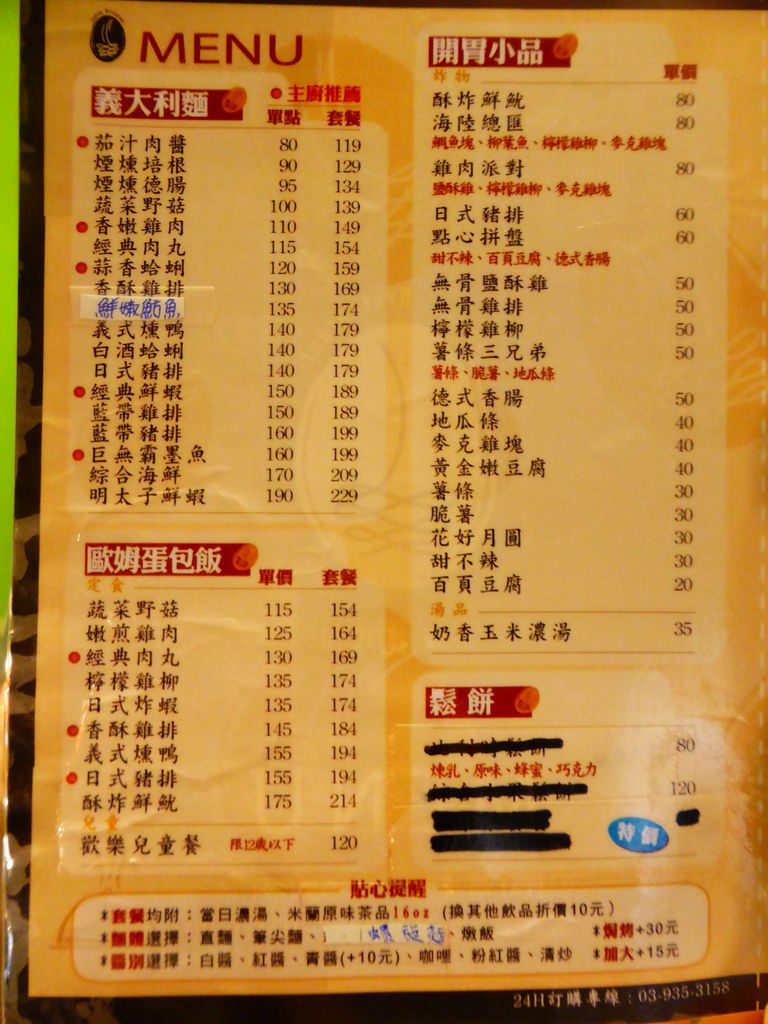 MENU
義大利麵
●主廚推薦
單點 套餐
●茄汁肉醬 80 119
煙燻培根 90 129
煙燻德腸 95 134
蔬菜野菇 100 139
●香嫩雞肉 110 149
經典肉丸 115 154
●蒜香蛤蜊 120 159
香酥雞排 130 169
鮮嫩魴魚 135 174
義式燻鴨 140 179
白酒蛤蜊 140 179
日式豬排 140 179
●經典鮮蝦 150 189
藍帶雞排 150 189
藍帶豬排 160 199
●巨無霸墨魚 160 199
綜合海鮮 170 209
明太子鮮蝦 190 229
歐姆蛋包飯
定食 單價 套餐
蔬菜野菇 115 154
嫩煎雞肉 125 164
●經典肉丸 130 169
檸檬雞柳 135 174
日式炸蝦 135 174
●香酥雞排 145 184
義式燻鴨 155 194
●日式豬排 155 194
酥炸鮮魷 175 214
兒童
歡樂兒童餐 限12歲以下 120
開胃小品
炸物 單價
酥炸鮮魷 80
海陸總匯 80
鯛魚塊、柳葉魚、檸檬雞柳、麥克雞塊
雞肉派對 80
鹽酥雞、檸檬雞柳、麥克雞塊
日式豬排 60
點心拼盤 60
甜不辣、百頁豆腐、德式香腸
無骨鹽酥雞 50
無骨雞排 50
檸檬雞柳 50
薯條三兄弟 50
薯條、脆薯、地瓜條
德式香腸 50
地瓜條 40
麥克雞塊 40
黃金嫩豆腐 40
薯條 30
脆薯 30
花好月圓 30
甜不辣 30
百頁豆腐 20
湯品
奶香玉米濃湯 35
鬆餅
80
煉乳、原味、蜂蜜、巧克力
120
特價
貼心提醒
*套餐均附：當日濃湯、米蘭原味茶品16oz (換其他飲品折價10元)
*麵體選擇：直麵、筆尖麵、螺旋麵、燉飯 *焗烤+30元
*醬別選擇：白醬、紅醬、青醬(+10元)、咖哩、粉紅醬、清炒 *加大+15元
24H訂購專線：03-935-3158